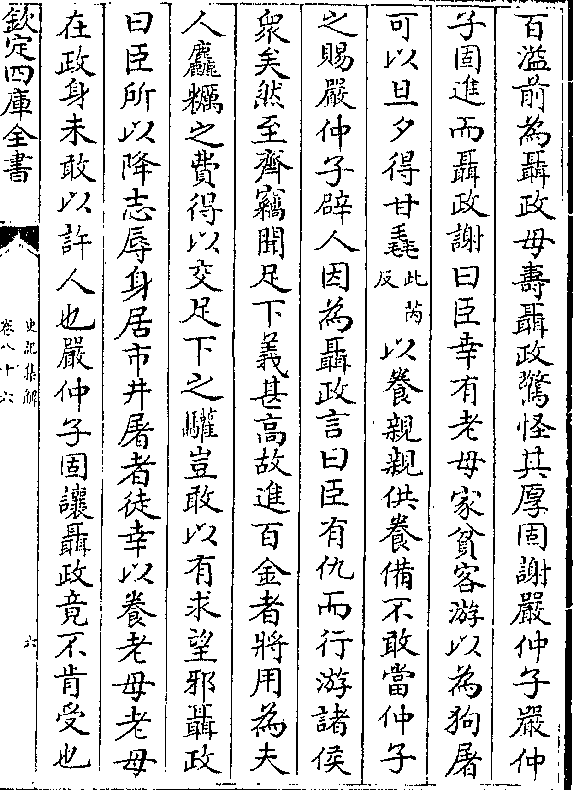 百溢前為聶政母壽聶政驚怪其厚固謝嚴仲子嚴仲
子固進而聶政謝曰臣幸有老母家貧客游以為狗屠
可以旦夕得甘毳此芮反以養親親供養備不敢當仲子
之賜嚴仲子辟人因為聶政言曰臣有仇而行游諸侯
衆矣然至齊竊聞足下義甚高故進百金者將用為夫
人麤糲之費得以交足下之驩豈敢以有求望邪聶政
曰臣所以降志辱身居市井屠者徒幸以養老母老母
在政身未敢以許人也嚴仲子固讓聶政竟不肯受也
欽定四庫全書
史記集解
卷八十六
六